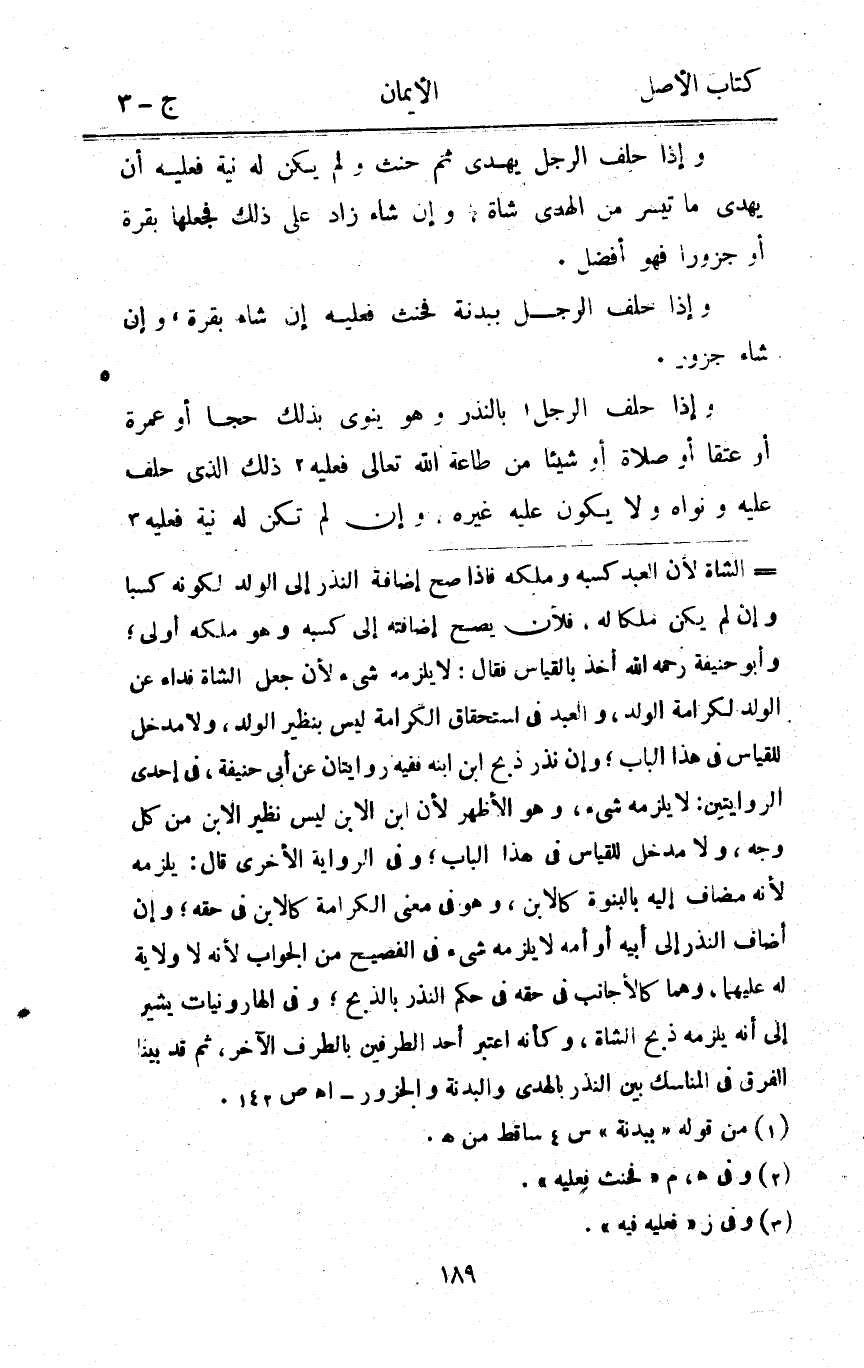 كتاب الأصل الأيمان ج - ٣
و إذا حلف الرجل يهدى ثم حنث و لم يكن له نية فعليه أن
يهدى ما تيسر من الهدى شاة ، و إن شاء زاد على ذلك فجعلها بقرة
أو جزورا فهو أفضل .
و إذا حلف الرجل ببدنة فحنث فعليه إن شاء بقرة ، و إن
شاء جزور .
٥
و إذا حلف الرجل١ بالنذر و هو ينوى بذلك حجا أو عمرة
أو عتقا أو صلاة أو شيئا من طاعة الله تعالى فعليه٢ ذلك الذى حلف
عليه و نواه و لا يكون عليه غيره ، و إن لم تكن له نية فعليه٣
= الشاة لأن العبد كسبه و ملكه فاذا صح إضافة النذر إلى الولد لكونه كسبا
و إن لم يكن ملكا له ، فلأن يصح إضافته إلى كسبه و هو ملكه أولى ؛
و أبو حنيفة رحمه الله أخذ بالقياس فقال : لا يلزمه شىء لأن جعل الشاة فداء عن
الولد لكرامة الولد ، و العبد فى استحقاق الكرامة ليس بنظير الولد ، و لا مدخل
للقياس فى هذا الباب ؛ و إن نذر ذبح ابن ابنه ففيه روايتان عن أبى حنيفة ، فى إحدى
الروايتين : لا يلزمه شىء ، و هو الأظهر لأن ابن الابن ليس نظير الابن من كل
وجه ، و لا مدخل للقياس فى هذا الباب ؛ و فى الرواية الأخرى قال : يلزمه
لأنه مضاف إليه بالبنوة كالابن ، و هو فى معنى الكرامة كالابن فى حقه ؛ و إن
أضاف النذر إلى أبيه أو أمه لا يلزمه شىء فى الفصيح من الجواب لأنه لا ولاية
له عليهما ، وهما كالأجانب فى حقه فى حكم النذر بالذبح ؛ و فى الهارونيات يشير
إلى أنه يلزمه ذبح الشاة ، و كأنه اعتبر أحد الطرفين بالطرف الآخر ، ثم قد بينا
الفرق فى المناسك بين النذر بالهدى والبدنة و الجزور - اه ص ١٤٢ .
(١) من قوله « ببدنة » س ٤ ساقط من ه .
(٢) و فى ه ، م « فحنث فعليه » .
(٣) و فى ز « فعليه فيه » .
١٨٩